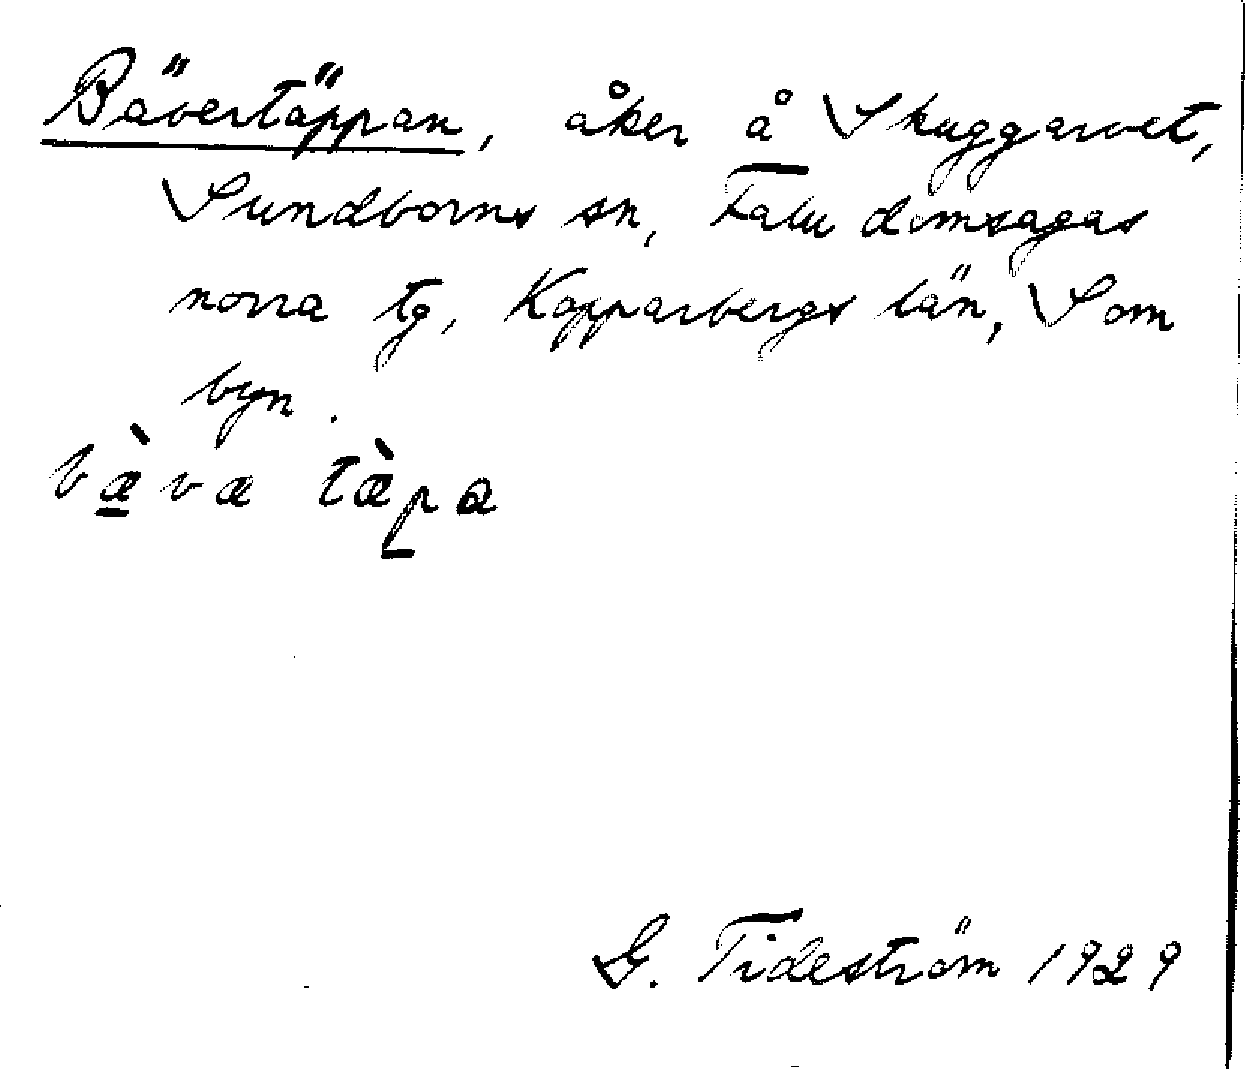 Bävertäppan, åker å Skuggarvet,
Sundborns sn, Falu domsagas
norra tg, Kopparbergs län, Som
byn.
bæ̀væ tæ̀pa
G. Tideström 1929